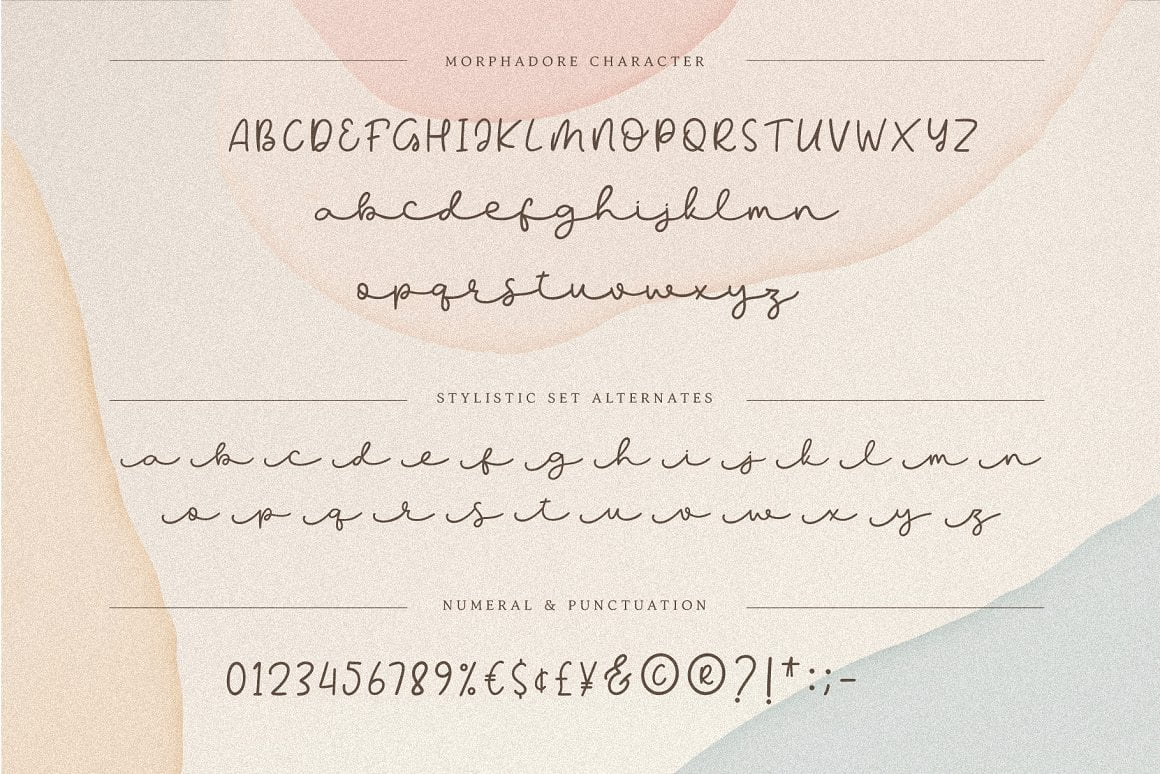 MORPHADORE CHARACTER
ABCDEFGHIJKLMNOPQRSTUVWXYZ
abcdefghijklmn
opqrstuvwxyz
STYLISTIC SET ALTERNATES
a b c d e f g h i j k l m n
o p q r s t u v w x y z
NUMERAL & PUNCTUATION
0123456789%€$¢£¥&©®?!*:;-